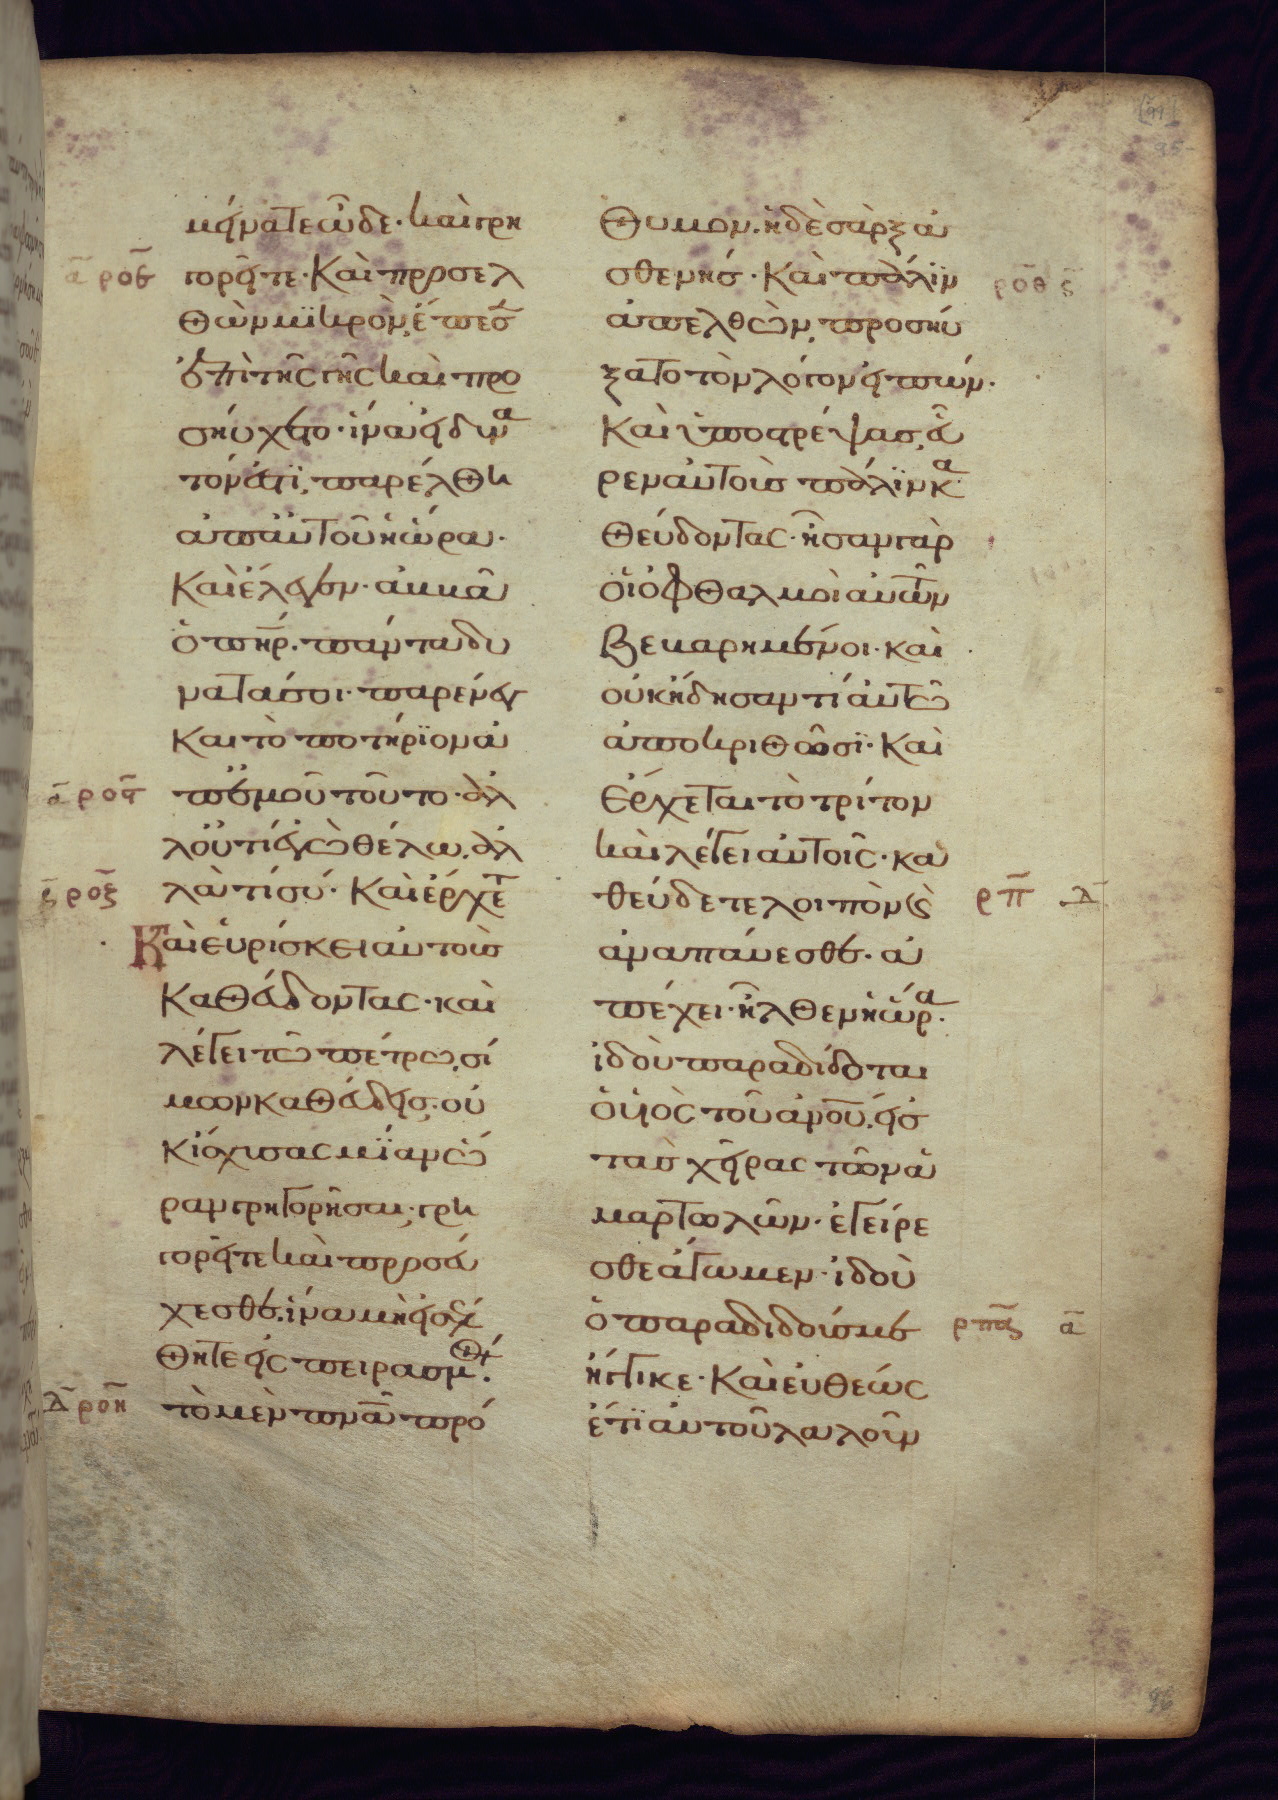 μείνατε ὧδε· καὶ γρη
α ροε γορεῖτε· Καὶ προσελ
θὼν μϊκρὸν, ἔπεσ
ἐπὶ τῆς γῆς καὶ προ
σηύχετο· ἵνα εἰ δυνα
τόν ἐστϊ, παρέλθη
ἀπ' αὐτοῦ ἡ ὥρα·
Καὶ ἔλεγεν· ἀββᾶ
ὁ πηρ· πάντα δυ
νατὰ σοι· παρένεγ
και τὸ ποτήρϊον ἀ
α ρος π' ἐμοῦ τοῦτο· ἀλ
λ' οὐ τί ἐγὼ θέλω, ἀλ
ροζ λὰ τί σύ· Καὶ ἔρχετ
Καὶ εὑρίσκει αὐτοὺς
καθεύδοντας· καὶ
λέγει τῶ πέτρω, σί
μων καθεύδεις· οὐ
κ ἴσχυσας μϊαν ὥ
ραν γρηγορῆσαι, γρη
γορεῖτε καὶ προσεύ
χεσθε· ἵνα μὴ εἰσέλ
θητε εἰς πειρασμ·
Δ ροη τὸ μὲν πνα πρό
θυμον· ἡ δὲ σὰρξ ἀ
σθενής· Καὶ πάλϊν ροθ ς
ἀπελθὼν, προσηύ
ξατο τὸν λόγον εἰπών·
Καὶ ὑποστρέψας, εὗ
ρεν αὐτοὺς πάλϊν κα
θεύδοντας· ἦσαν γὰρ
οἱ ὀφθαλμοὶ αὐτῶν
βεβαρημένοι· καὶ
οὐκ ἤδησαν τί αὐτῶ
ἀποκριθῶσϊ· Καὶ
ἔρχεται τὸ τρίτον
καὶ λέγει αὐτοῖς· κα
θεύδετε λοιπὸν καὶ ρπ Δ
ἀναπαύεσθε· ἀ
πέχει· ἦλθεν ἡ ὥρα·
ἰδοὺ παραδίδοται
ὁ υἱὸς τοῦ ἀνου, εἰς
τὰς χεῖρας τῶν ἁ
μαρτωλῶν· ἐγείρε
σθε ἄγωμεν· ἰδοὺ
ὁ παραδιδούς με ρπα α
ἤγγικε· Καὶ εὐθέως
ἔτϊ αὐτοῦ λαλοῦν